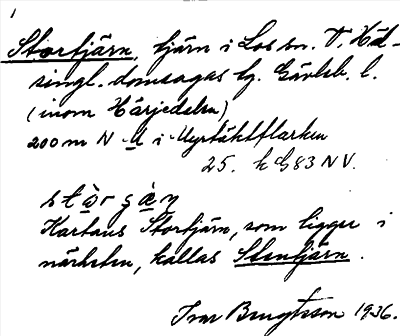 Stortjärn, tjärn i Los sn. V. Häl-
singl. domsagas tg. Gävleb. l.
(inom Härjedalen)
200 m N i Myrtäktflarken
25. k G83 NV.
Kartans Stortjärn, som ligger i
närheten, kallas Stentjärn.
Ivar Bengtsson 1936.